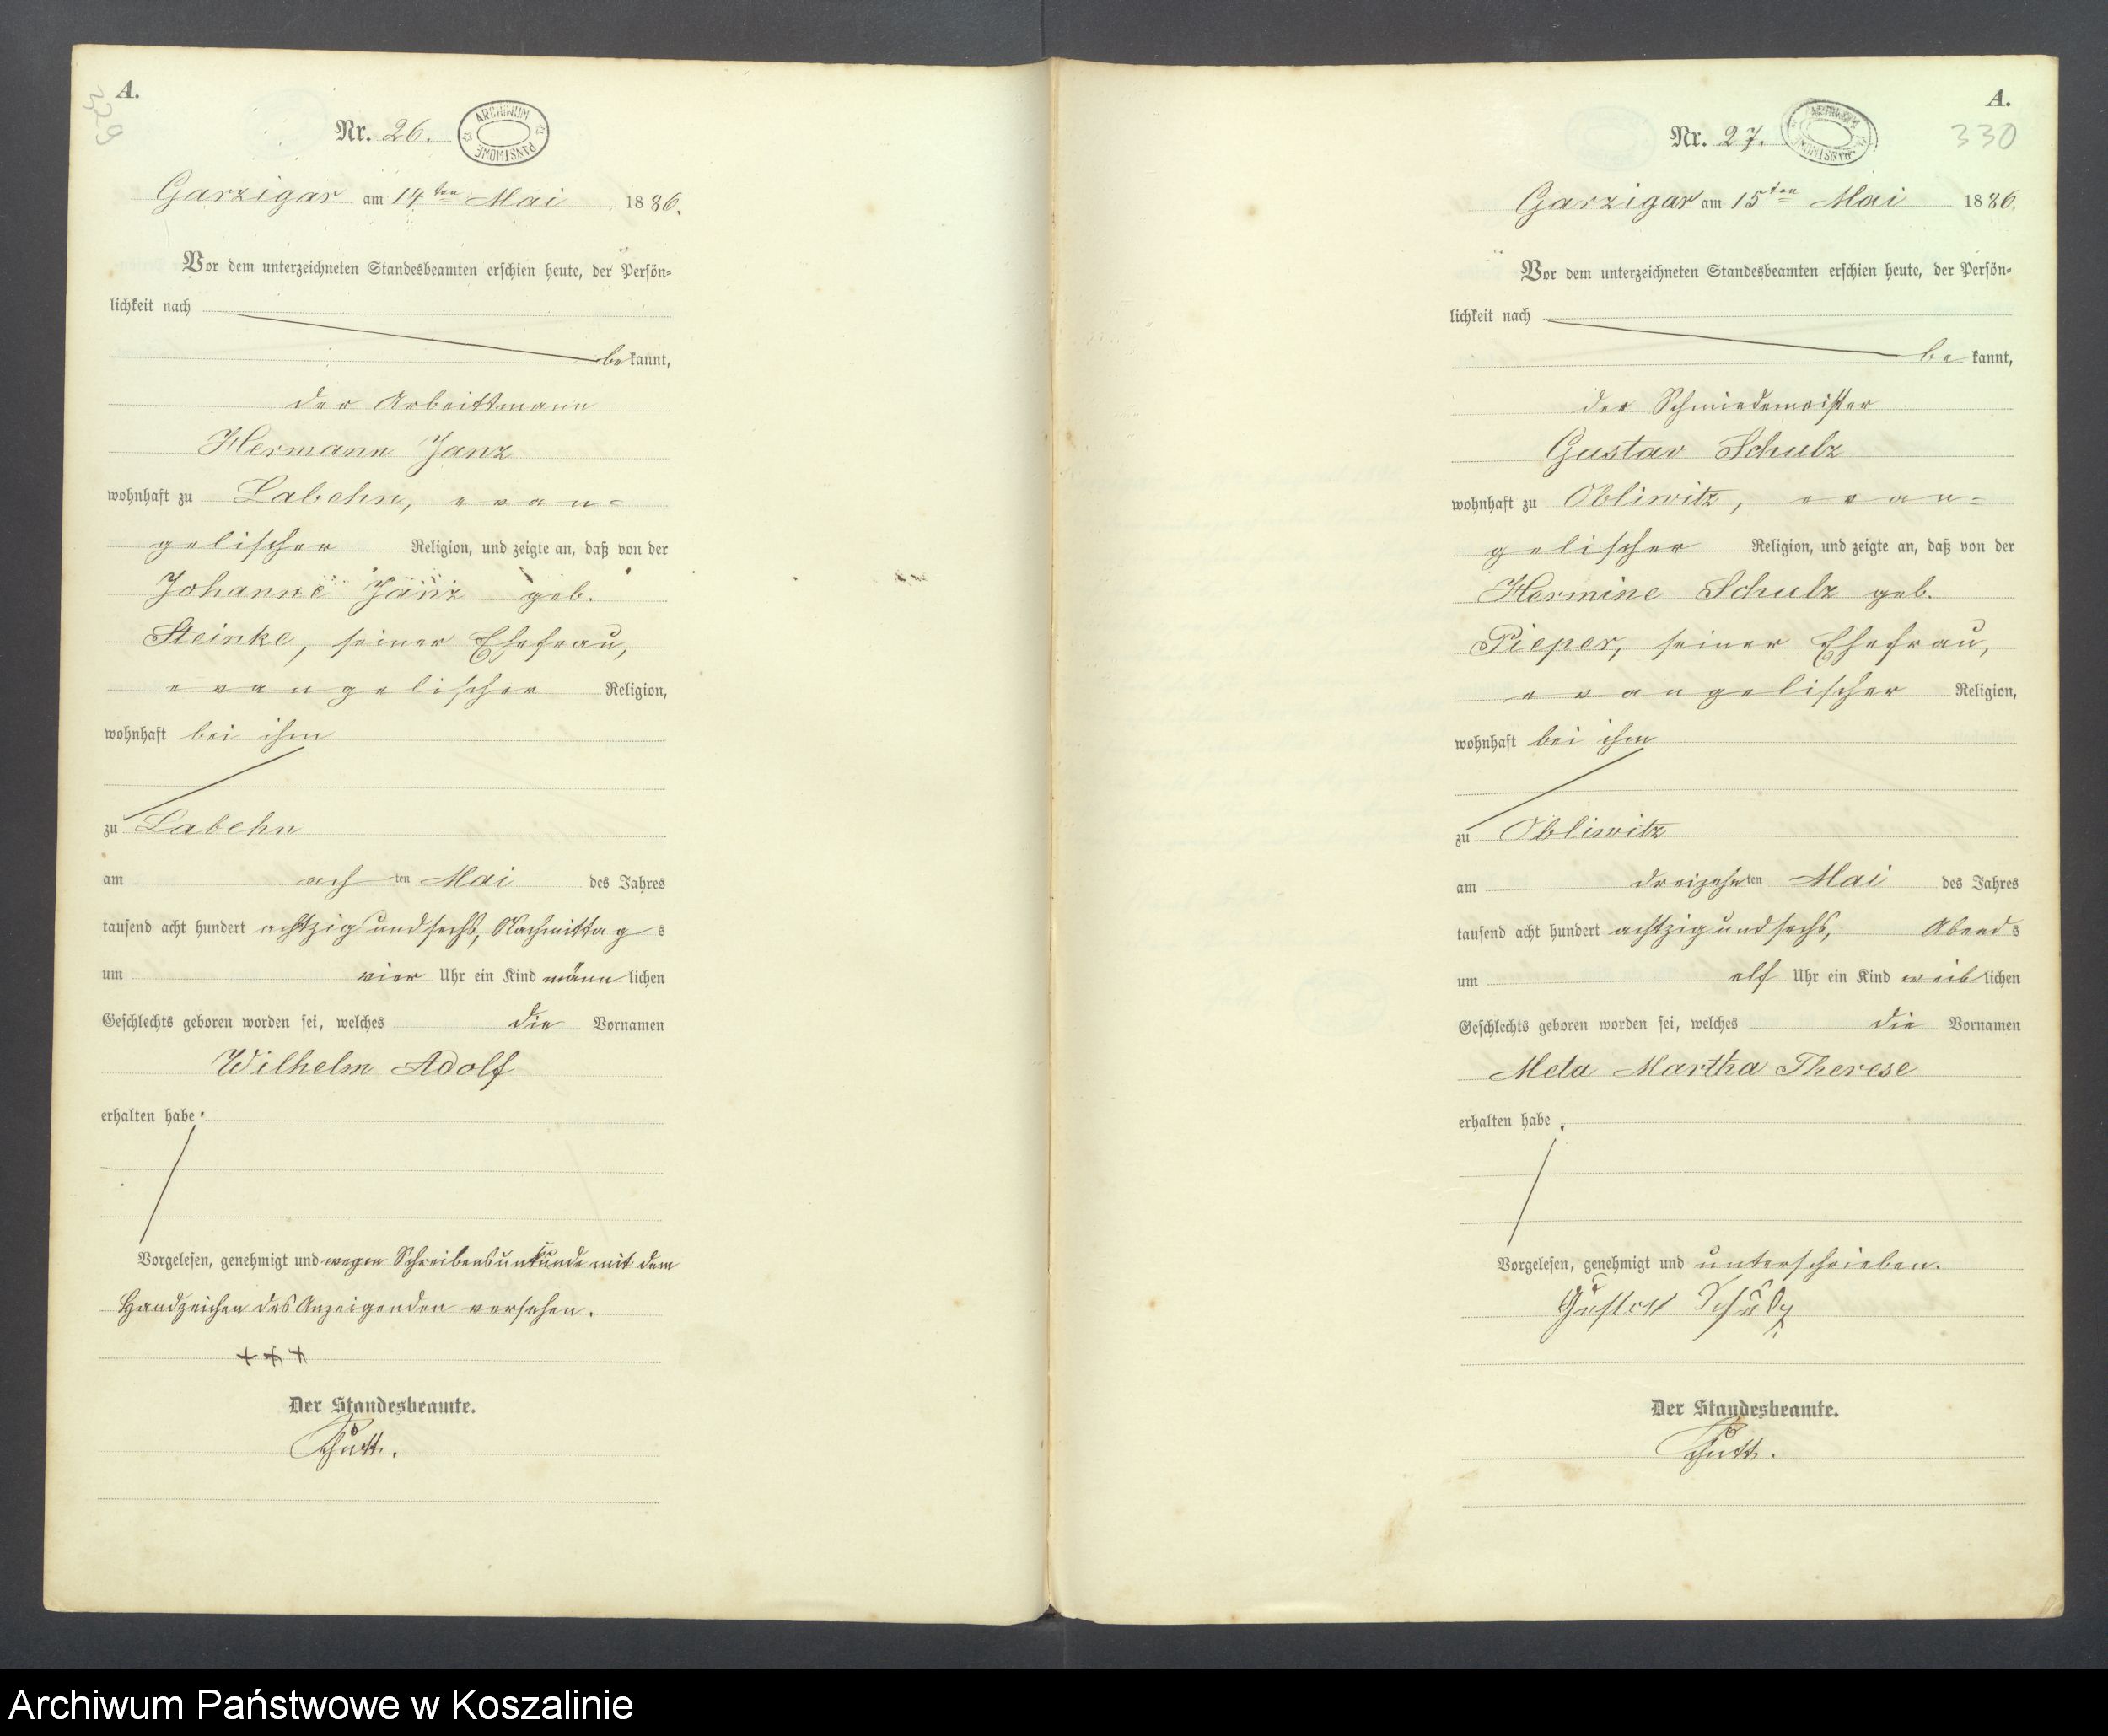 A.
329
Nr. 26.
ARCHIWUM PAŃSTWOWE
Garzigar am 14ten Mai 1886.
Vor dem unterzeichneten Standesbeamten erschien heute, der Persön-
lichkeit nach
bekannt,
der Arbeitsmann
Hermann Janz
wohnhaft zu Labehn, evan-
gelischer Religion, und zeigte an, daß von der
Johanne Janz geb.
Steinke, seiner Ehefrau,
evangelischer Religion,
wohnhaft bei ihm
zu Labehn
am achten Mai des Jahres
tausend acht hundert achtzig und sechs, Nachmittags
um vier Uhr ein Kind männlichen
Geschlechts geboren worden sei, welches die Vornamen
Wilhelm Adolf
erhalten habe.
Vorgelesen, genehmigt und wegen Schreibensunkunde mit dem
Handzeichen des Anzeigenden versehen.
+++
Der Standesbeamte.
A.
330
Nr. 27.
ARCHIWUM PAŃSTWOWE
Garzigar am 15ten Mai 1886
Vor dem unterzeichneten Standesbeamten erschien heute, der Persön-
lichkeit nach
bekannt,
der Schmiedemeister
Gustav Schulz
wohnhaft zu Obliwitz, evan-
gelischer Religion, und zeigte an, daß von der
Hermine Schulz geb.
Pieper, seiner Ehefrau,
evangelischer Religion,
wohnhaft bei ihm
zu Obliwitz
am dreizehnten Mai des Jahres
tausend acht hundert achtzig und sechs, Abends
um elf Uhr ein Kind weiblichen
Geschlechts geboren worden sei, welches die Vornamen
Meta Martha Therese
erhalten habe.
Vorgelesen, genehmigt und unterschrieben.
Gustav Schulz
Der Standesbeamte.
Archiwum Państwowe w Koszalinie